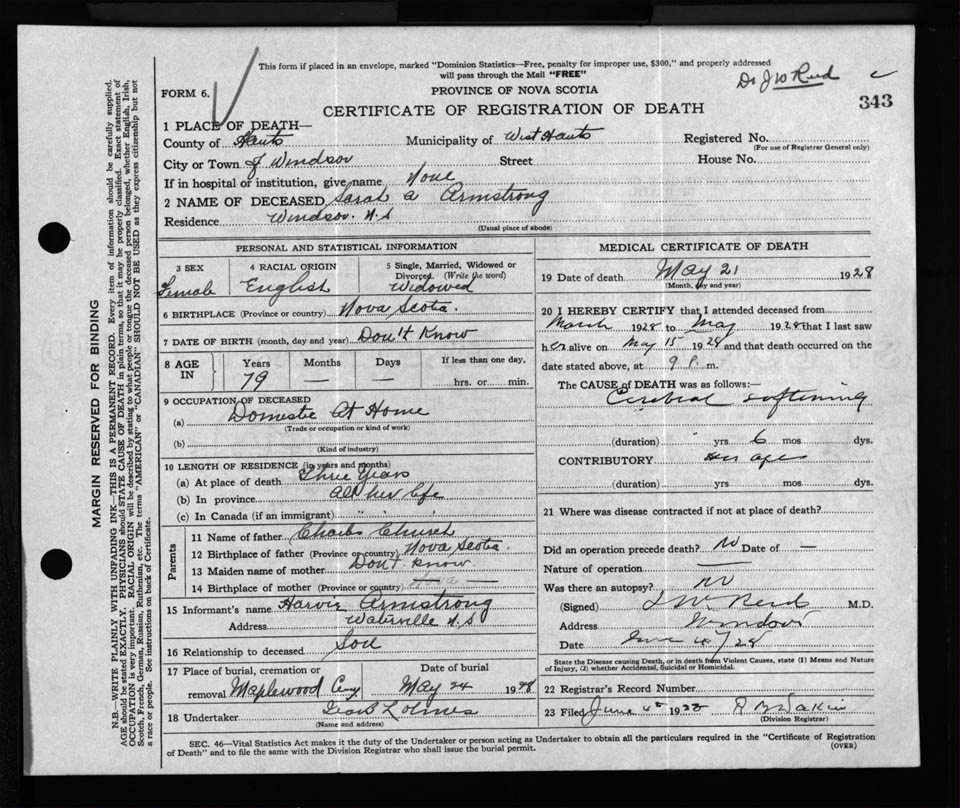 This form if placed in an envelope, marked "Dominion Statistics—Free, penalty for improper use, $300," and properly addressed
will pass through the Mail "FREE"
Dr J W Reid
343
FORM 6.
PROVINCE OF NOVA SCOTIA
CERTIFICATE OF REGISTRATION OF DEATH
1 PLACE OF DEATH—
County of Hants Municipality of West Hants Registered No.
(For use of Registrar General only)
City or Town of Windsor Street House No.
If in hospital or institution, give name None
2 NAME OF DECEASED Sarah A Armstrong
Residence Windsor. N.S
(Usual place of abode)
PERSONAL AND STATISTICAL INFORMATION
3 SEX 4 RACIAL ORIGIN 5 Single, Married, Widowed or
Divorced. (Write the word)
Female English Widowed
6 BIRTHPLACE (Province or country) Nova Scotia.
7 DATE OF BIRTH (month, day and year) Don't Know
8 AGE IN Years Months Days If less than one day,
79 — — hrs. or min.
9 OCCUPATION OF DECEASED
(a) Domestic At Home
(Trade or occupation or kind of work)
(b)
(Kind of industry)
10 LENGTH OF RESIDENCE (in years and months)
(a) At place of death Three Years
(b) In province All her life
(c) In Canada (if an immigrant) " " "
Parents
11 Name of father Charles Church
12 Birthplace of father (Province or country) Nova Scotia.
13 Maiden name of mother Don't know
14 Birthplace of mother (Province or country) —
15 Informant's name Armstrong
Address Waterville N.S
16 Relationship to deceased Son
17 Place of burial, cremation or Date of burial
removal Maplewood Cemy May 24 1928
18 Undertaker Holmes
(Name and address)
MEDICAL CERTIFICATE OF DEATH
19 Date of death May 21 1928
(Month, day and year)
20 I HEREBY CERTIFY that I attended deceased from
March 1928 to May 1928 that I last saw
her alive on May 15 1928 and that death occurred on the
date stated above, at 9 P. m.
The CAUSE of DEATH was as follows:—
Cerebral softening
(duration) yrs 6 mos dys.
CONTRIBUTORY her age
(duration) yrs. mos. dys.
21 Where was disease contracted if not at place of death?
Did an operation precede death? No Date of —
Nature of operation —
Was there an autopsy? No
(Signed) J W Reid M.D.
Address Windsor
Date June 4/28
State the Disease causing Death, or in death from Violent Causes, state (1) Means and Nature
of Injury, (2) whether Accidental, Suicidal or Homicidal.
22 Registrar's Record Number
23 Filed June 4th 1928
(Division Registrar)
SEC. 46—Vital Statistics Act makes it the duty of the Undertaker or person acting as Undertaker to obtain all the particulars required in the "Certificate of Registration
of Death" and to file the same with the Division Registrar who shall issue the burial permit.
(OVER)
MARGIN RESERVED FOR BINDING
N.B.—WRITE PLAINLY WITH UNFADING INK—THIS IS A PERMANENT RECORD. Every item of information should be carefully supplied.
AGE should be stated EXACTLY. PHYSICIANS should STATE CAUSE OF DEATH in plain terms, so that it may be properly classified. Exact statement of
OCCUPATION is very important. RACIAL ORIGIN will be described by stating to what people or tongue the deceased person belonged, whether English, Irish,
Scotch, French, German, Russian, Ruthenian, etc. The terms "AMERICAN" or "CANADIAN" SHOULD NOT BE USED as they express citizenship but not
a race or people. See instructions on back of Certificate.